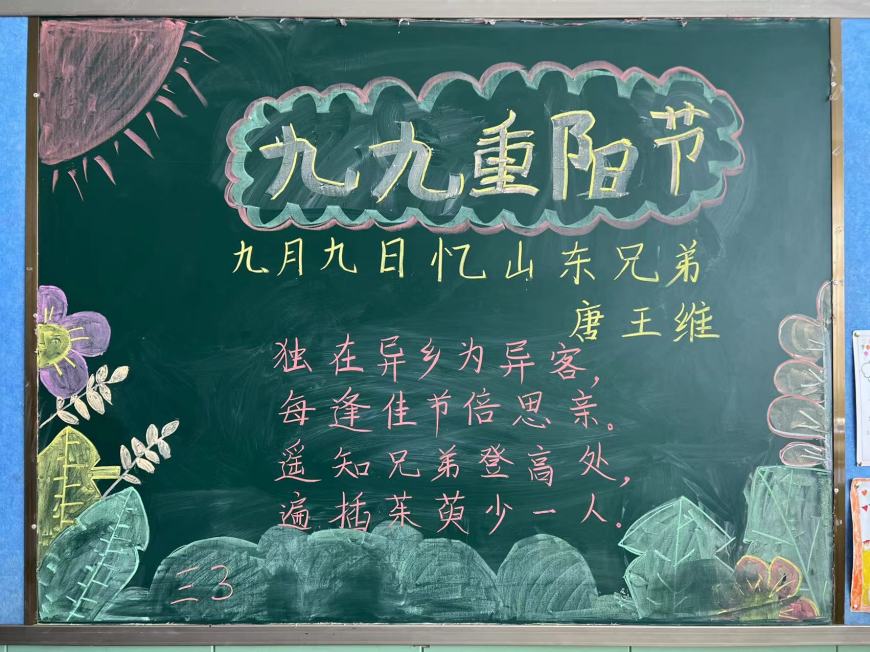 九九重阳节
九月九日忆山东兄弟
唐王维
独在异乡为异客，
每逢佳节倍思亲。
遥知兄弟登高处，
遍插茱萸少一人.
三3